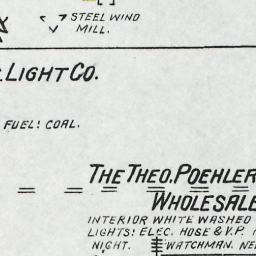 STEEL WIND
MILL.
LIGHT CO.
FUEL: COAL.
THE THEO. POEHLER
WHOLESALE
INTERIOR WHITE WASHED
LIGHTS: ELEC. HOSE & V.P.
NIGHT. WATCHMAN. NE